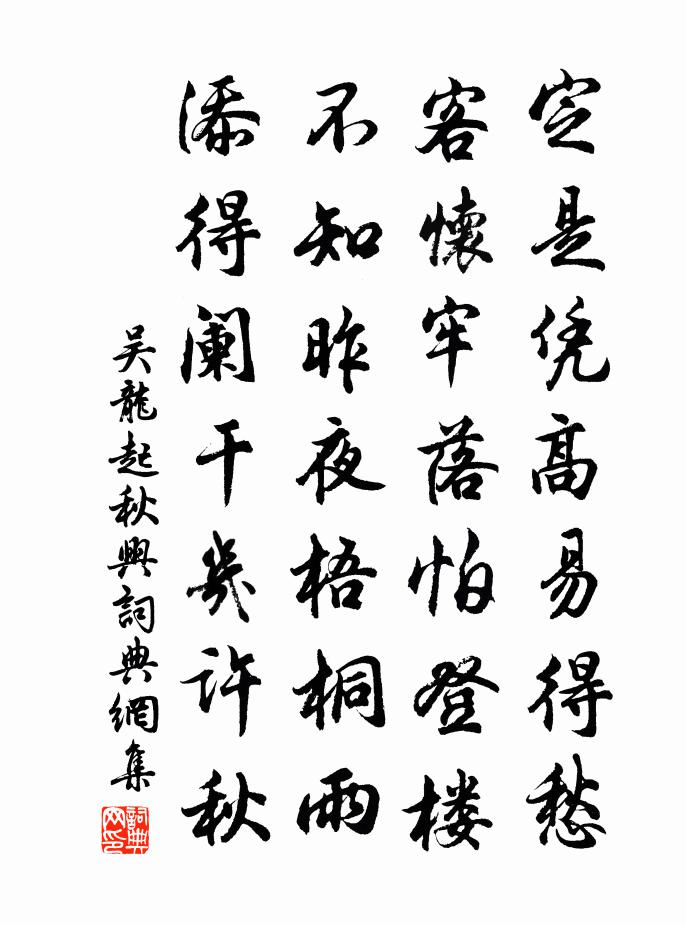 定是凭高易得愁
客懷牢落怕登楼
不知昨夜梧桐雨
添得阑干幾許秋
吳龍起秋興詞典網集
詞典网印